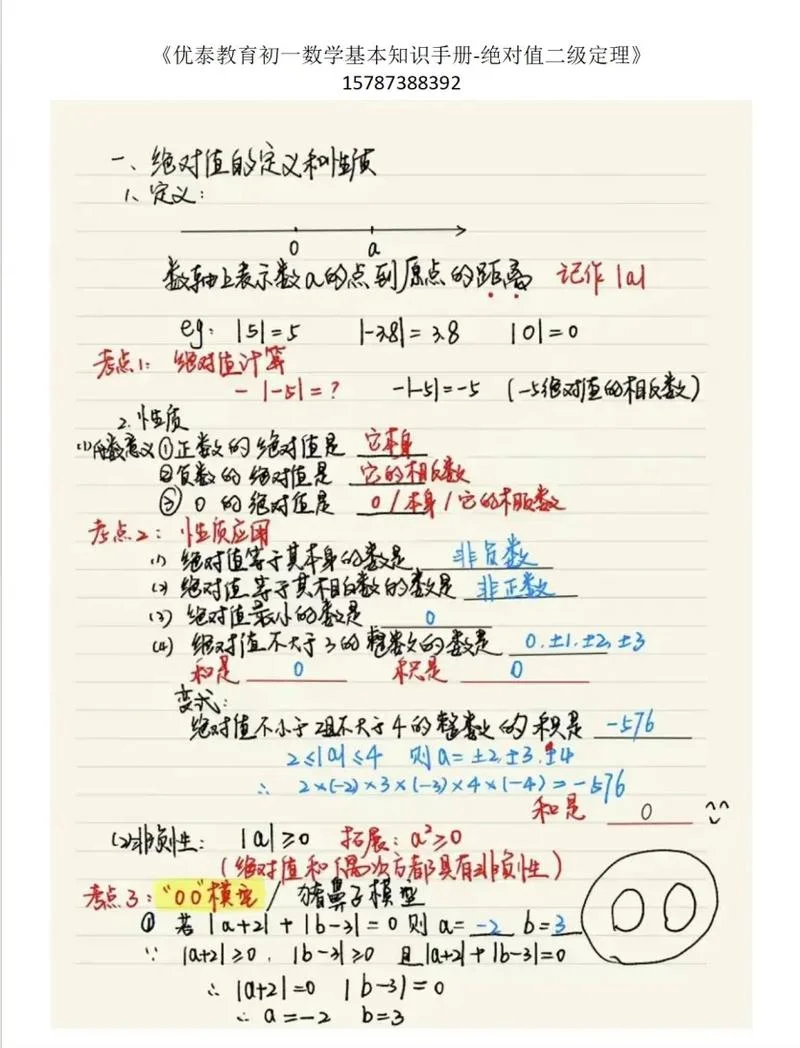 《优泰教育初一数学基本知识手册-绝对值二级定理》
15787388392
一、绝对值的定义和性质
1、定义：
0 a
数轴上表示数a的点到原点的距离 记作|a|
eg： |5|=5 |-3.8|=3.8 |0|=0
考点1： 绝对值计算
-|-5|=? -|-5|=-5 (-5绝对值的相反数)
2、性质
(1)代数意义①正数的绝对值是 它本身
②负数的绝对值是 它的相反数
③ 0 的绝对值是 0/本身/它的相反数
考点2： 性质应用
(1) 绝对值等于其本身的数是 非负数
(2) 绝对值等于其相反数的数是 非正数
(3) 绝对值最小的数是 0
(4) 绝对值不大于3的整数的数是 0.±1.±2,±3
和是 0 积是 0
变式：
绝对值不小于2且不大于4的整数的积是 -576
2≤|a|≤4 则a=±2,±3,±4
∴ 2×(-2)×3×(-3)×4×(-4)=-576
和是 0
(2)非负性： |a|≥0 拓展：a²≥0
(绝对值和偶次方都具有非负性)
考点3："00"模型/猪鼻子模型
① 若|a+2|+|b-3|=0则a=-2 b=3
∵ |a+2|≥0, |b-3|≥0 且|a+2|+|b-3|=0
∴ |a+2|=0 |b-3|=0
∴ a=-2 b=3